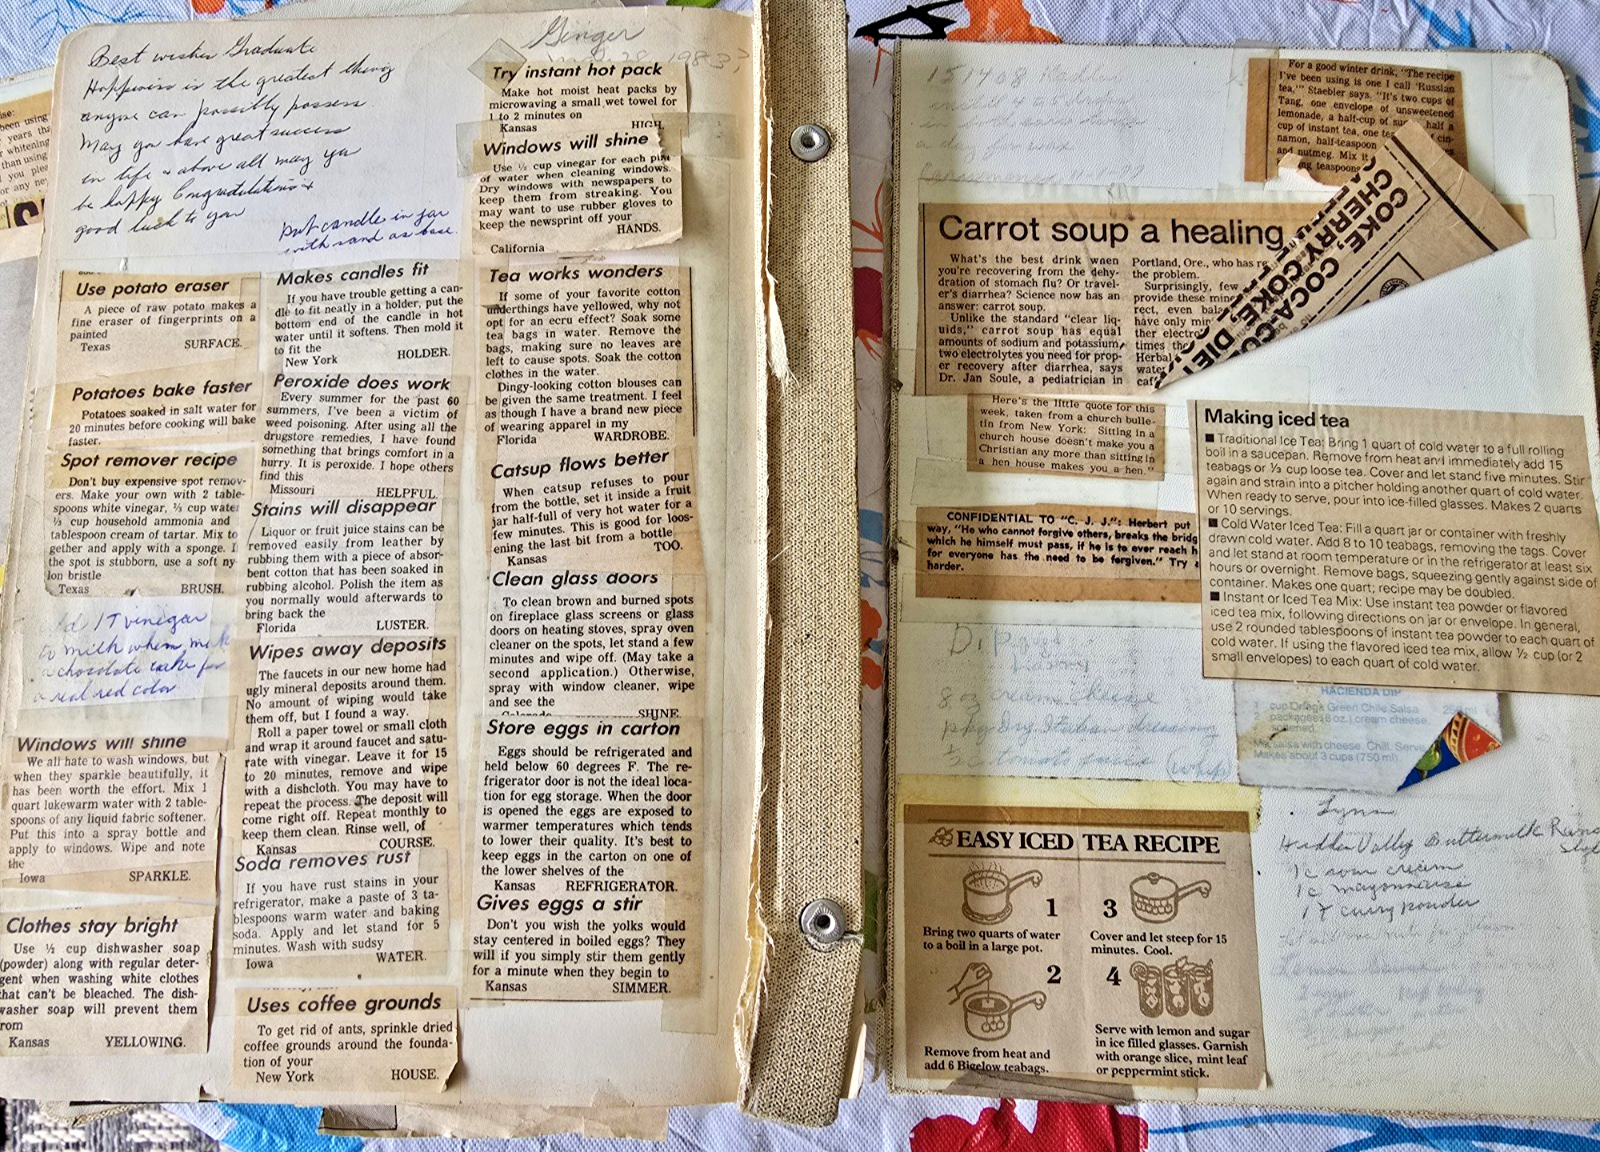 Best wishes Graduate
Happiness is the greatest thing
anyone can possibly possess
May you have great success
in life & above all may you
be happy Congratulations &
good luck to you
put candle in jar
with sand as base.
Use potato eraser
A piece of raw potato makes a
fine eraser of fingerprints on a
painted
Texas SURFACE.
Potatoes bake faster
Potatoes soaked in salt water for
20 minutes before cooking will bake
faster.
Spot remover recipe
Don't buy expensive spot remov-
ers. Make your own with 2 table-
spoons white vinegar, ⅓ cup water
⅓ cup household ammonia and
tablespoon cream of tartar. Mix to
gether and apply with a sponge. I
the spot is stubborn, use a soft ny-
lon bristle
Texas BRUSH.
1 T vinegar
to milk when
chocolate cake for
a real red color
Windows will shine
We all hate to wash windows, but
when they sparkle beautifully, it
has been worth the effort. Mix 1
quart lukewarm water with 2 table-
spoons of any liquid fabric softener.
Put this into a spray bottle and
apply to windows. Wipe and note
the
Iowa SPARKLE.
Clothes stay bright
Use ½ cup dishwasher soap
(powder) along with regular deter-
gent when washing white clothes
that can't be bleached. The dish-
washer soap will prevent them
rom
Kansas YELLOWING.
Makes candles fit
If you have trouble getting a can-
dle to fit neatly in a holder, put the
bottom end of the candle in hot
water until it softens. Then mold it
to fit the
New York HOLDER.
Peroxide does work
Every summer for the past 60
summers, I've been a victim of
weed poisoning. After using all the
drugstore remedies, I have found
something that brings comfort in a
hurry. It is peroxide. I hope others
find this
Missouri HELPFUL.
Stains will disappear
Liquor or fruit juice stains can be
removed easily from leather by
rubbing them with a piece of absor-
bent cotton that has been soaked in
rubbing alcohol. Polish the item as
you normally would afterwards to
bring back the
Florida LUSTER.
Wipes away deposits
The faucets in our new home had
ugly mineral deposits around them.
No amount of wiping would take
them off, but I found a way.
Roll a paper towel or small cloth
and wrap it around faucet and satu-
rate with vinegar. Leave it for 15
to 20 minutes, remove and wipe
with a dishcloth. You may have to
repeat the process. The deposit will
come right off. Repeat monthly to
keep them clean. Rinse well, of
Kansas COURSE.
Soda removes rust
If you have rust stains in your
refrigerator, make a paste of 3 ta-
blespoons warm water and baking
soda. Apply and let stand for 5
minutes. Wash with sudsy
Iowa WATER.
Uses coffee grounds
To get rid of ants, sprinkle dried
coffee grounds around the founda-
tion of your
New York HOUSE.
Ginger
1983
Try instant hot pack
Make hot moist heat packs by
microwaving a small wet towel for
1 to 2 minutes on
Kansas HIGH.
Windows will shine
Use ½ cup vinegar for each pint
of water when cleaning windows.
Dry windows with newspapers to
keep them from streaking. You
may want to use rubber gloves to
keep the newsprint off your
HANDS.
California
Tea works wonders
If some of your favorite cotton
underthings have yellowed, why not
opt for an ecru effect? Soak some
tea bags in water. Remove the
bags, making sure no leaves are
left to cause spots. Soak the cotton
clothes in the water.
Dingy-looking cotton blouses can
be given the same treatment. I feel
as though I have a brand new piece
of wearing apparel in my
Florida WARDROBE.
Catsup flows better
When catsup refuses to pour
from the bottle, set it inside a fruit
jar half-full of very hot water for a
few minutes. This is good for loos-
ening the last bit from a bottle
Kansas TOO.
Clean glass doors
To clean brown and burned spots
on fireplace glass screens or glass
doors on heating stoves, spray oven
cleaner on the spots, let stand a few
minutes and wipe off. (May take a
second application.) Otherwise,
spray with window cleaner, wipe
and see the
Colorado SHINE.
Store eggs in carton
Eggs should be refrigerated and
held below 60 degrees F. The re-
frigerator door is not the ideal loca-
tion for egg storage. When the door
is opened the eggs are exposed to
warmer temperatures which tends
to lower their quality. It's best to
keep eggs in the carton on one of
the lower shelves of the
Kansas REFRIGERATOR.
Gives eggs a stir
Don't you wish the yolks would
stay centered in boiled eggs? They
will if you simply stir them gently
for a minute when they begin to
Kansas SIMMER.
For a good winter drink, "The recipe
I've been using is one I call 'Russian
tea,'" Staebler says. "It's two cups of
Tang, one envelope of unsweetened
lemonade, a half-cup of half a
cup of instant tea, one cin-
namon, half-teaspoon
and nutmeg. Mix
teaspoons
Carrot soup a healing
What's the best drink when
you're recovering from the dehy-
dration of stomach flu? Or travel-
er's diarrhea? Science now has an
answer: carrot soup.
Unlike the standard "clear liq-
uids," carrot soup has equal
amounts of sodium and potassium,
two electrolytes you need for prop-
er recovery after diarrhea, says
Dr. Jan Soule, a pediatrician in
Portland, Ore., who has
the problem.
Surprisingly, few
provide these
rect, even
have only
ther
times the
Herbal
water
COKE, COCA-CO
CHERRY COKE, DIE
Here's the little quote for this
week, taken from a church bulle-
tin from New York: Sitting in a
church house doesn't make you a
Christian any more than sitting in
a hen house makes you a hen."
CONFIDENTIAL TO "C. J. J.": Herbert put
way, "He who cannot forgive others, breaks the bridg
which he himself must pass, if he is to ever reach h
for everyone has the need to be forgiven." Try
harder.
Making iced tea
■ Traditional Ice Tea: Bring 1 quart of cold water to a full rolling
boil in a saucepan. Remove from heat and immediately add 15
teabags or ⅓ cup loose tea. Cover and let stand five minutes. Stir
again and strain into a pitcher holding another quart of cold water.
When ready to serve, pour into ice-filled glasses. Makes 2 quarts
or 10 servings.
■ Cold Water Iced Tea: Fill a quart jar or container with freshly
drawn cold water. Add 8 to 10 teabags, removing the tags. Cover
and let stand at room temperature or in the refrigerator at least six
hours or overnight. Remove bags, squeezing gently against side of
container. Makes one quart; recipe may be doubled.
■ Instant or Iced Tea Mix: Use instant tea powder or flavored
iced tea mix, following directions on jar or envelope. In general,
use 2 rounded tablespoons of instant tea powder to each quart of
cold water. If using the flavored iced tea mix, allow ½ cup (or 2
small envelopes) to each quart of cold water.
Dip
8 oz cream cheese
pkg Dry Italian dressing
HACIENDA DIP
1 cup Ortega Green Chile Salsa 250 ml
2 packages (8 oz.) cream cheese,
softened
Mix salsa with cheese. Chill. Serve
Makes about 3 cups (750 ml)
EASY ICED TEA RECIPE
1
Bring two quarts of water
to a boil in a large pot.
2
Remove from heat and
add 6 Bigelow teabags.
3
Cover and let steep for 15
minutes. Cool.
4
Serve with lemon and sugar
in ice filled glasses. Garnish
with orange slice, mint leaf
or peppermint stick.
Lynn
Hidden Valley Buttermilk Ranch
1 c sour cream
1 c mayonnaise
1 T curry powder